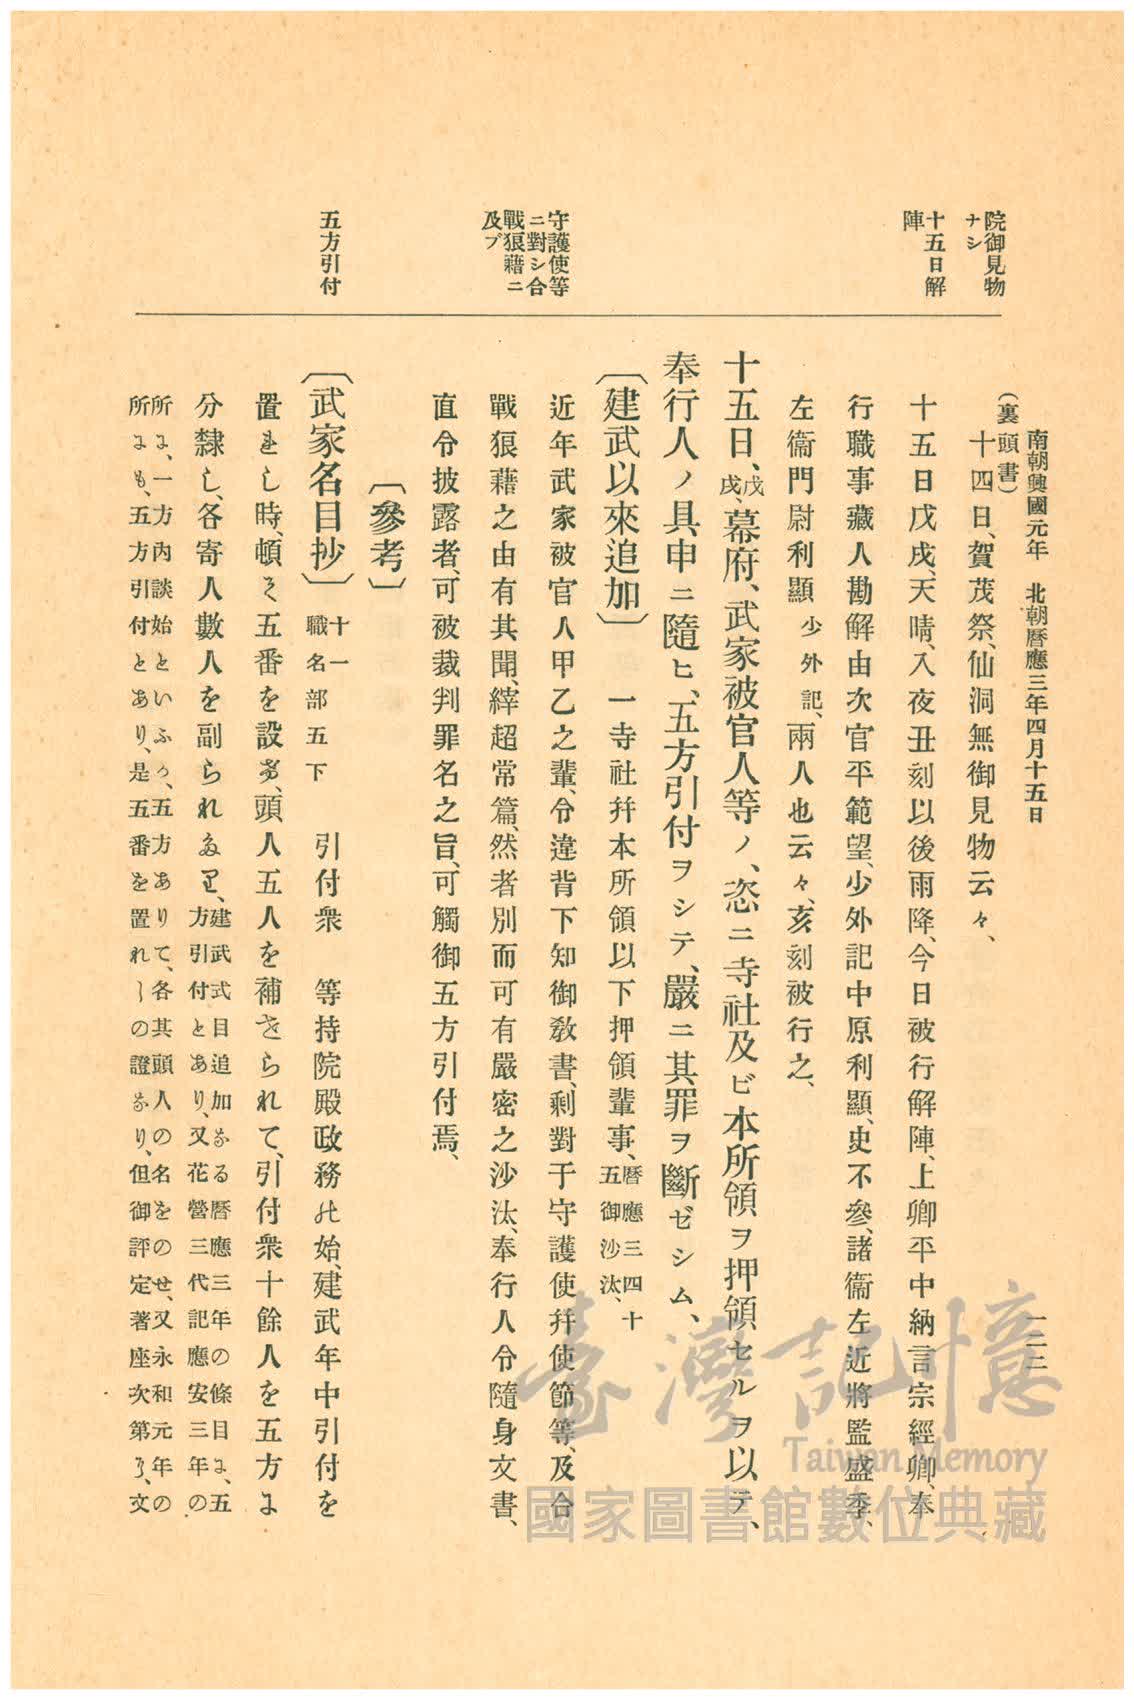 南朝興國元年　北朝曆應三年四月十五日
一二二
院御見物
ナシ
十五日解
陣
守護使等
ニ對シ合
戰狼藉ニ
及ブ
五方引付
(裏頭書)
十四日、賀茂祭、仙洞無御見物云々、
十五日戊戌、天晴、入夜丑刻以後雨降、今日被行解陣、上卿平中納言宗經卿、奉
行職事藏人勘解由次官平範望、少外記中原利顯、史不參、諸衞左近將監盛季、
左衞門尉利顯少外記、兩人也云々、亥刻被行之、
十五日、戊戌、幕府、武家被官人等ノ、恣ニ寺社及ビ本所領ヲ押領セルヲ以テ、
奉行人ノ具申ニ隨ヒ、五方引付ヲシテ、嚴ニ其罪ヲ斷ゼシム、
〔建武以來追加〕　一寺社幷本所領以下押領輩事、曆應三四十五御沙汰、
近年武家被官人甲乙之輩、令違背下知御敎書、剩對于守護使幷使節等、及合
戰狼藉之由有其聞、縡超常篇、然者別而可有嚴密之沙汰、奉行人令隨身文書、
直令披露者、可被裁判罪名之旨、可觸御五方引付焉、
〔參考〕
〔武家名目抄〕十一職名部五下　引付衆　等持院殿政務の始、建武年中引付を
置れし時、頓て五番を設け、頭人五人を補せられて、引付衆十餘人を五方に
分隸し、各寄人數人を副られたり、建武式目追加なる曆應三年の條目に、五
方引付とあり、又花營三代記應安三年の
所に、一方內談始といふも、五方ありて、各其頭人の名をのせ、又永和元年の
所にも、五方引付とあり、是五番を置れしの證なり、但御評定著座次第に、文
臺灣記憶
Taiwan Memory
國家圖書館數位典藏